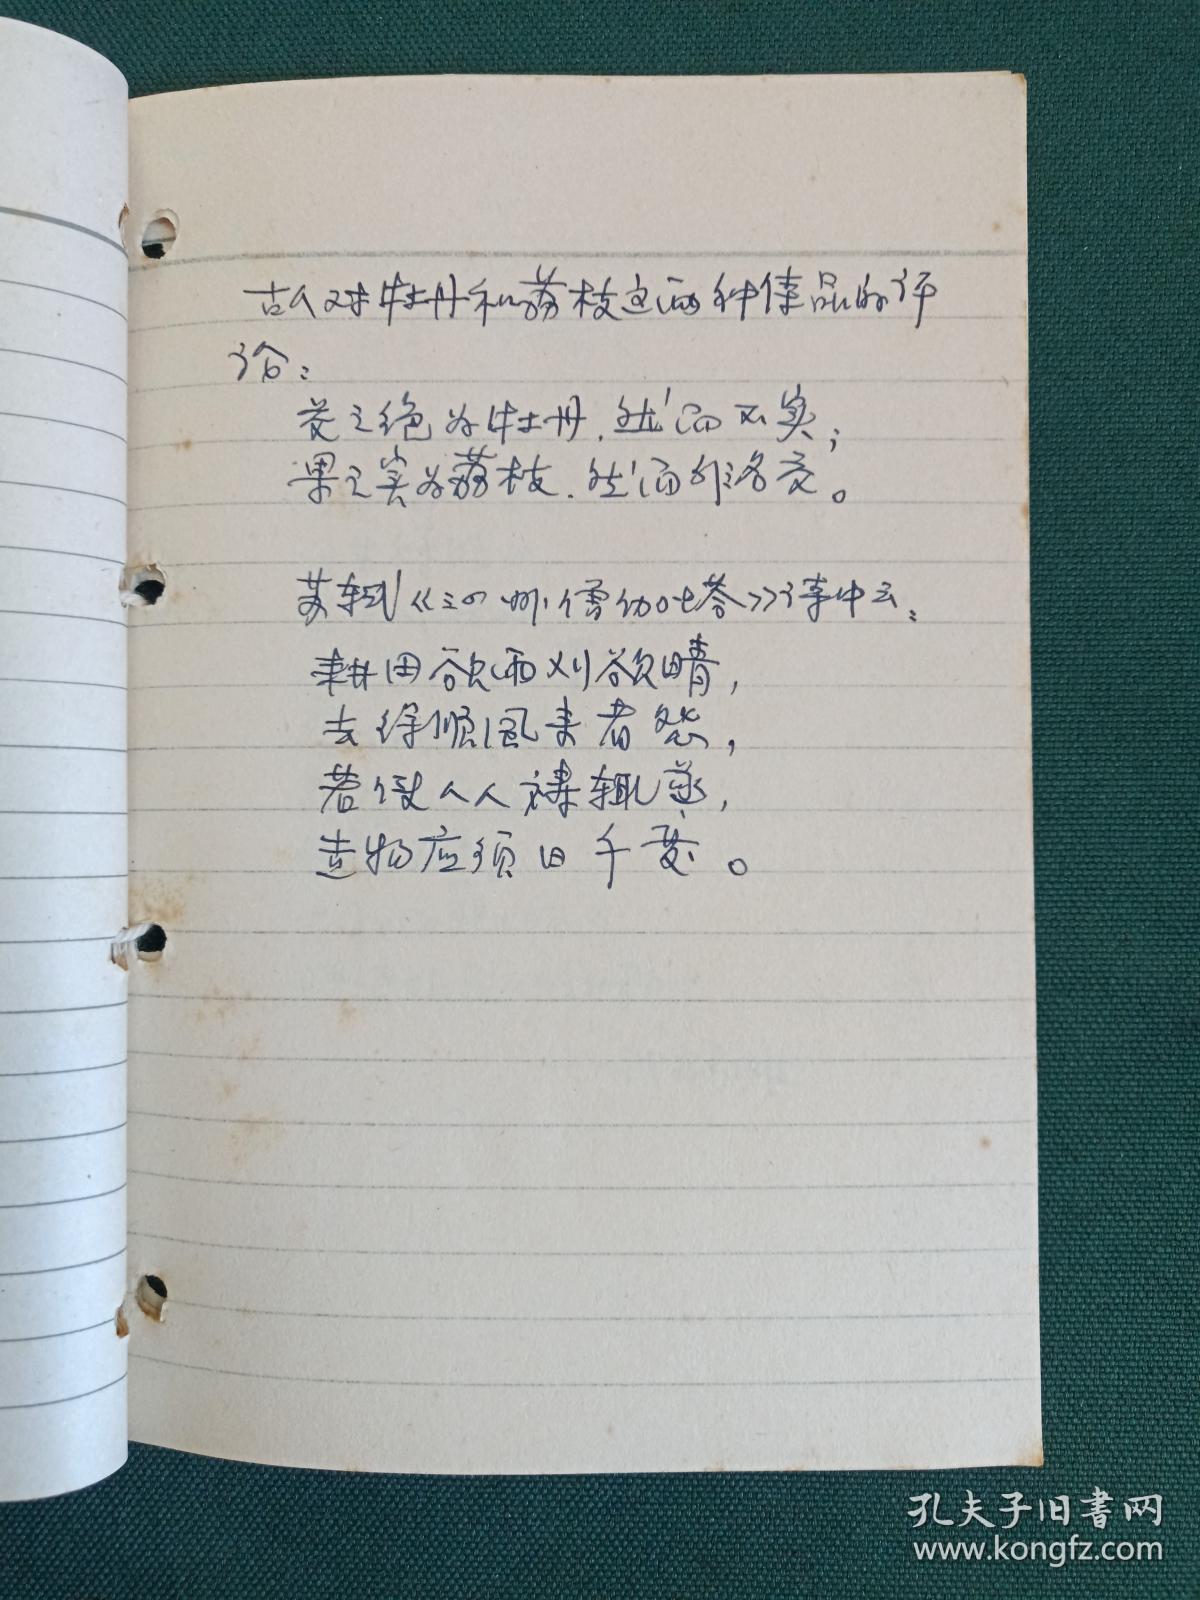 古人对牡丹和荔枝这两种佳品的评
论：
花之绝为牡丹，然而不实；
果之实为荔枝，然而非名花。
苏轼《泗州僧伽塔》诗中云：
耕田欲雨刈欲晴，
去得顺风来者怨，
若使人人祷辄遂，
造物应须日千变。
孔夫子旧書网
www.kongfz.com